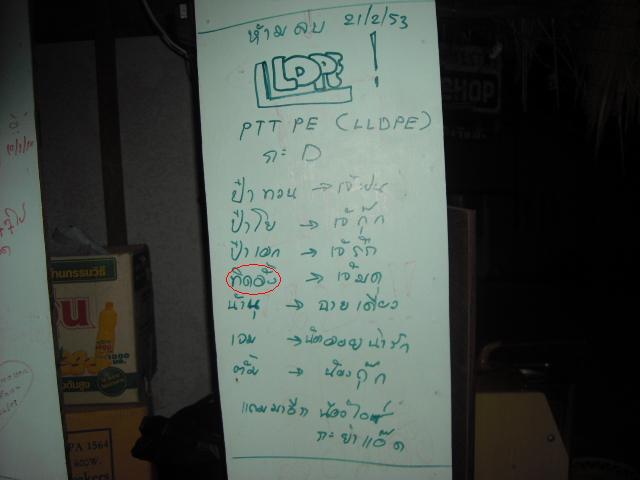 ห้ามลบ 21/2/53
LLDPE !
PTT PE (LLDPE)
กะ D
ป๋าทวน → เจ๊
ป๋าโย → เจ๊กุ๊ก
ป๋าเอก → เจ๊
ทิดอั๋ง → เจ๊มด
น้านุ → ฉายเดี่ยว
เจม → น่ารัก
ตั้ม → น้องกุ๊ก
แถมมาอีก น้อง
กะ ย่าแอ๊ด
SHOP
านกรรมวิธี
PA 1564
600W.